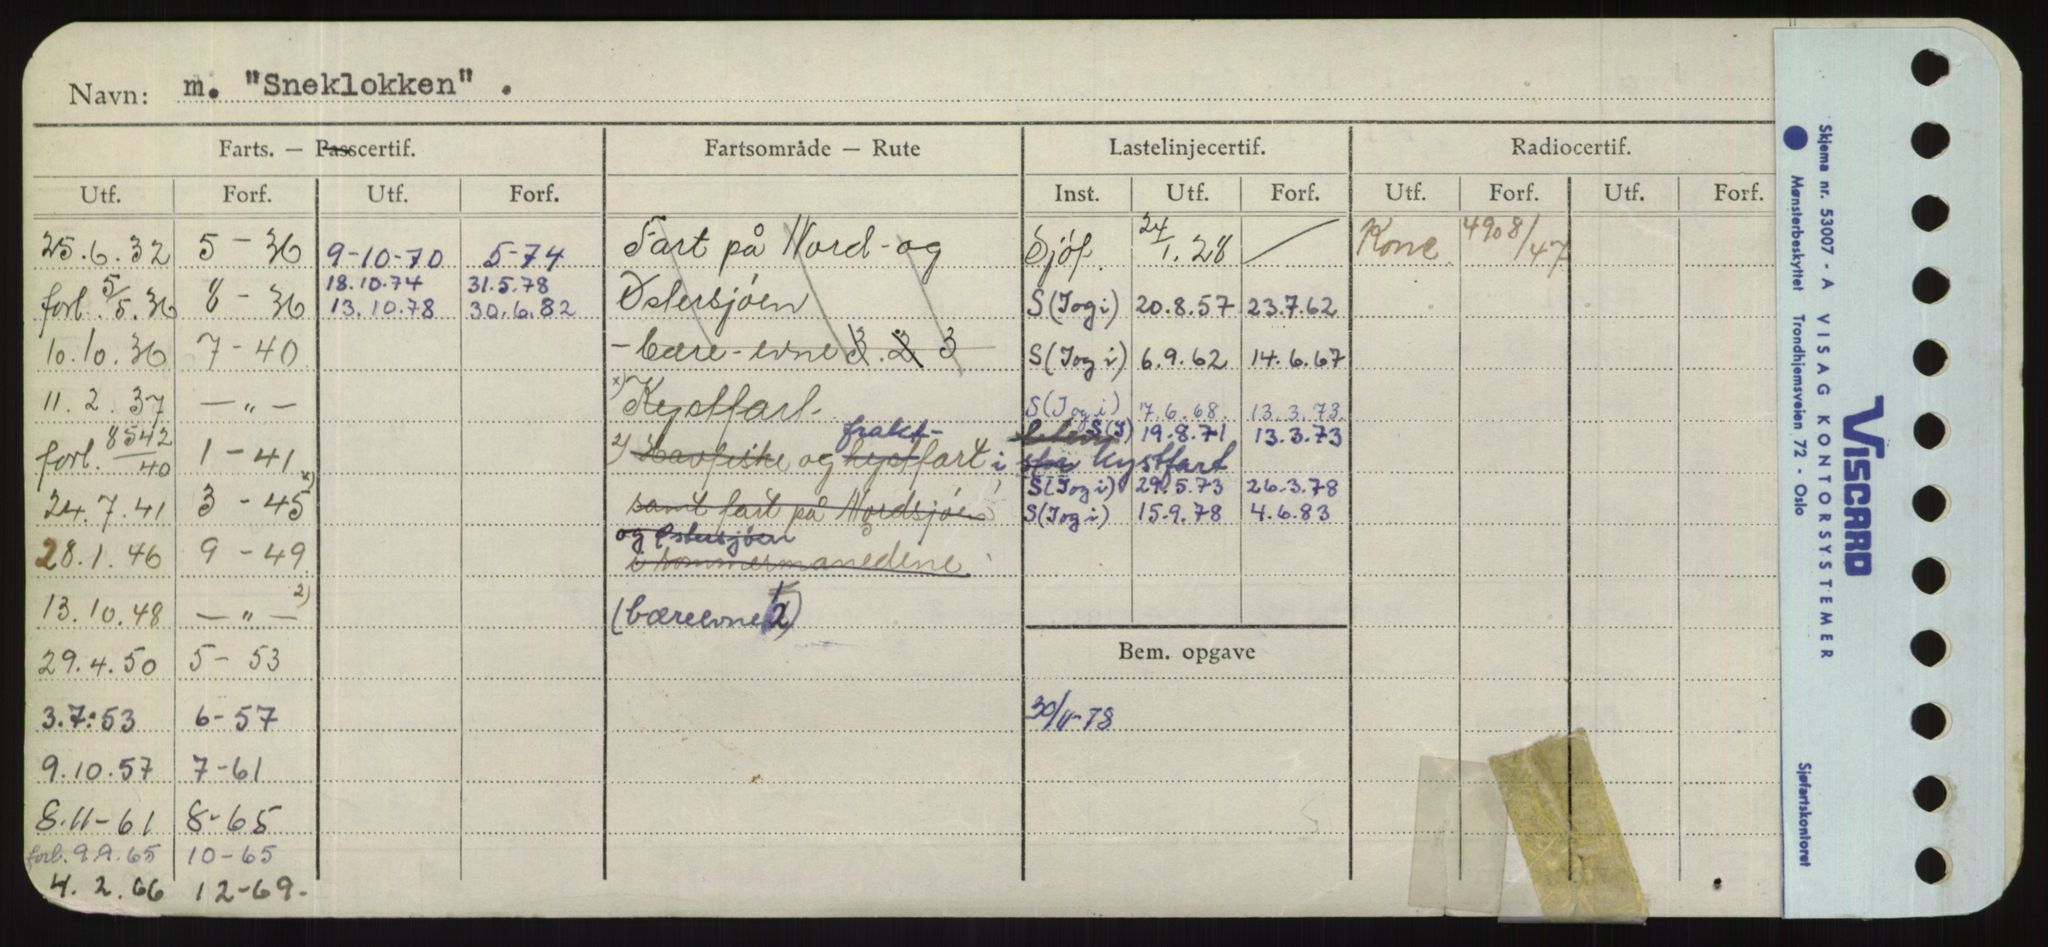 Navn: m. "Sneklokken" .
Farts. — Passcertif. Fartsområde — Rute Lastelinjecertif. Radiocertif.
Utf. Forf. Utf. Forf. Inst. Utf. Forf. Utf. Forf. Utf. Forf.
25.6.32 5 - 36 9-10-70 5-74 Fart på Nord- og Sjöf. 24/1.28 Konc. 4908/47
18.10.74 31.5.78
forl. 5/5.36 8 - 36 13.10.78 30.6.82 Østersjöen S(Iogi) 20.8.57 23.7.62
10.10.36 7 - 40 - bære-evne 3. 2 3 S(Iogi) 6.9.62 14.6.67
11.2.37 — " — x) Kystfart. S(Iogi) 7.6.68. 13.3.73.
frakt- S(I) 19.8.71 13.3.73
forl. 8542/40 1 - 41 2) Havfiske og kystfart i stor kystfart
24.7.41 3 - 45 x) samt fart på Nordsjöen S(Iogi) 29.5.73 26.3.78
S(Iogi) 15.9.78 4.6.83
og Østersjöen
28.1.46 9 - 49 i sommermånedene
13.10.48 — " — 2) (bæreevne 2)
29.4.50 5 - 53 Bem. opgave
3.7.53 6-57 30/11-78
9.10.57 7-61
8.11-61 8-65
forl. 9.9.65 10-65
4.2.66 12-69.
Skjema nr. 53007 - A VISAG KONTORSYSTEMER
Mønsterbeskyttet Trondhjemsveien 72 - Oslo
VISCARD
Sjøfartskontoret